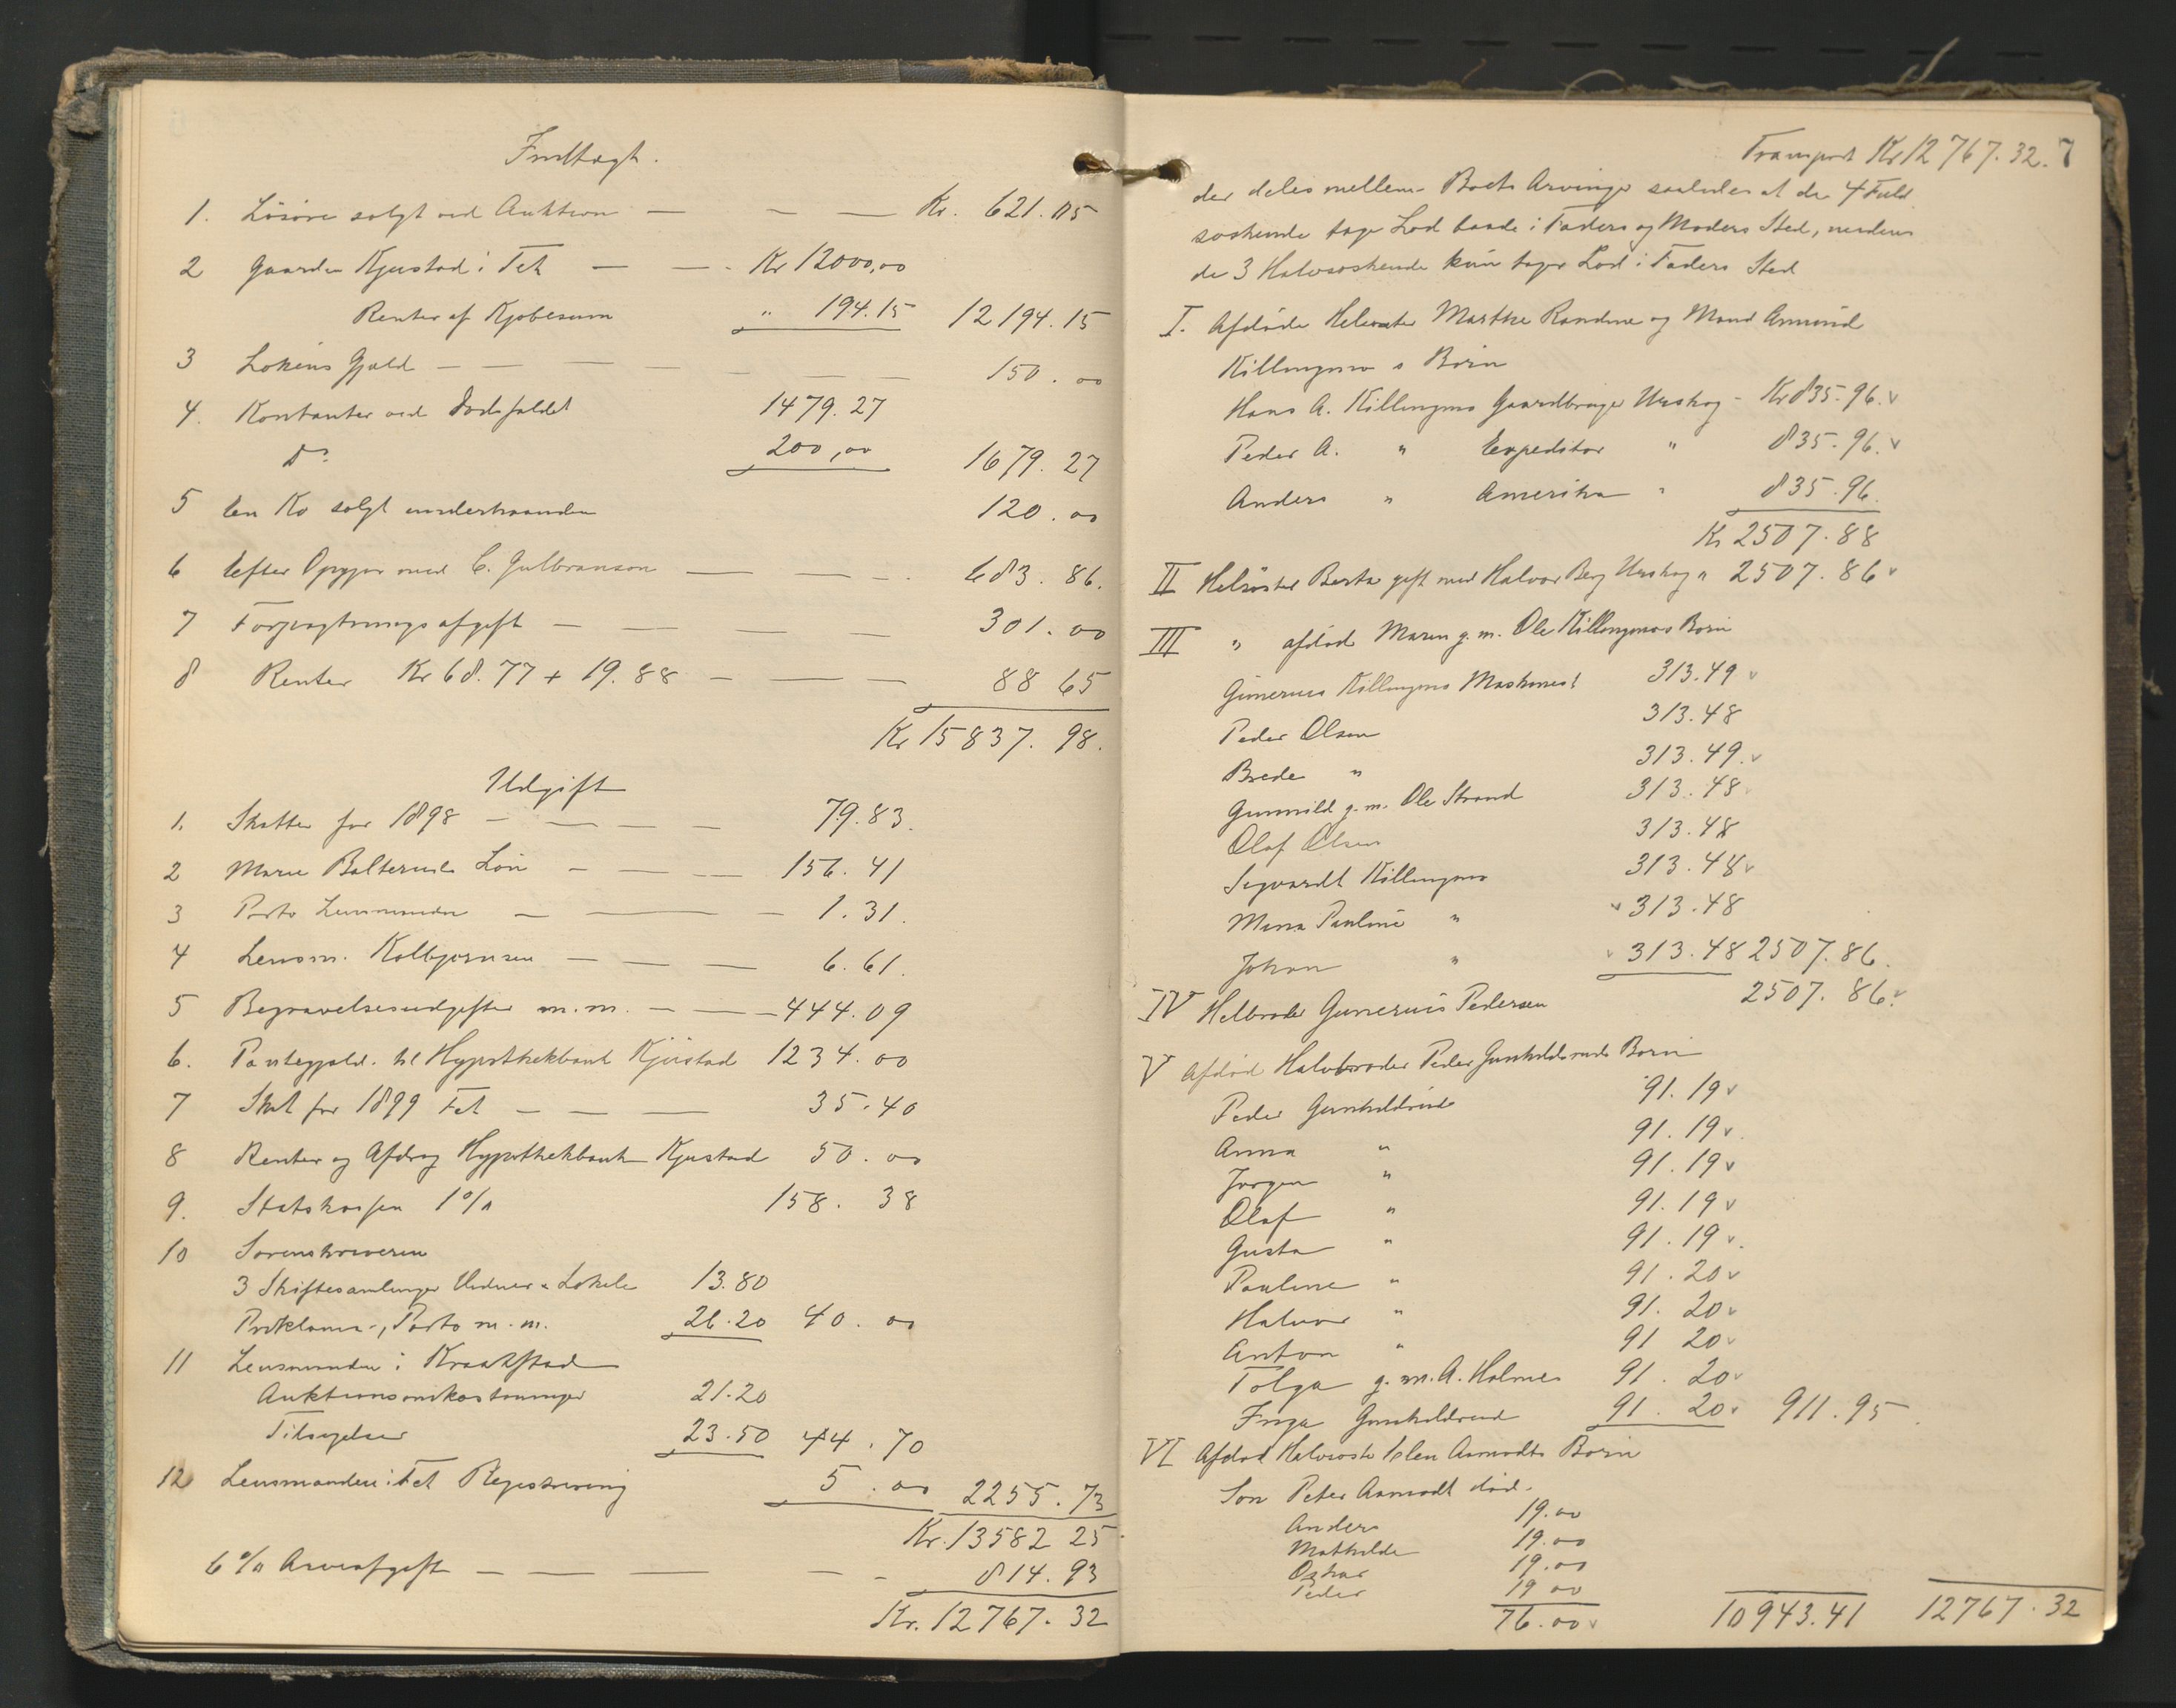 Indtægt.
1. Løsøre solgt ved Auktion — — — Kr. 621.05
2 Gaarden Kjustad i Fet — — Kr 12000,00
Renter af Kjøbesum " 194.15 12194.15
3 Lokens Gjæld — — — — — — 150.00
4. Kontanter ved Dødsfaldet 1479.27
Do 200,00 1679.27
5 En Ko solgt underhaanden 120.00
6 Efter Opgjør med C. Gulbranson — — — 683.86.
7 Forpagtningsafgift — — — — 301.00
8 Renter Kr 68.77 + 19.88 — — — 88 65
Kr 15837.98.
Udgift
1. Skatter for 1898 — — — — 79.83.
2 Marie Balteruds Løn — — — 156.41
3 Porto Lensmanden — — — 1.31.
4 Lensm. Kolbjørnsen — — — 6.61.
5 Begravelsesudgifter m.m. — — — 444.09
6. Pantegjæld. til Hypothekbank Kjustad 1234.00
7 Skat for 1899 Fet — — — 35.40
8 Renter og Afdrag Hypothekbank Kjustad 50.00
9. Statskassen 1% 158.38
10 Sorenskriveren
3 Skiftesamlinger Vidner & Lokale 13.80
Proklama-, Porto m.m. 26.20 40.00
11 Lensmanden i Kraakstad
Auktionsomkostninger 21.20
Tilsigelser 23.50 44.70
12 Lensmanden i Fet Registrering 5.00 2255.73
Kr. 13582 25
6% Arveafgift — — — — — 814.93
Kr. 12767.32
Transport Kr 12767.32. 7
der deles mellem Boets Arvinger saaledes at de 4 Fuld
søskende tage Lod baade i Faders og Moders Sted, medens
de 3 Halvsøskende kun tager Lod i Faders Sted
I. Afdøde Helsøster Marthe Randine og Mand Amund
Killingmo s Børn
Hans A. Killingmo Gaardbruger Urskog - Kr 835.96. v
Peder A. " Expeditør " 835.96. v
Anders " Amerika " 835.96.
Kr 2507.88
II Helsøster Berta gift med Halvor Berg Urskog " 2507.86 v
III " afdød Maren g.m. Ole Killingmos Børn
Gunerius Killingmo Maskinest 313.49 v
Peder Olsen 313.48
Brede " 313.49. v
Gunnild g.m. Ole Strand 313.48
Olaf Olsen 313.48
Sigvardt Killingmo 313.48 v
Mina Pauline " v 313.48
Johan " v 313.48 2507.86.
IV Helbroder Gunerius Pedersen 2507.86. v
V Afdød Halvbroder Peder Gunhildsruds Børn
Peder Gunhildsrud 91.19 v
Anna " 91.19 v.
Jørgen " 91.19 v
Olaf " 91.19 v
Gusta " 91.19 v.
Pauline " 91.20 v
Halvor " 91.20 v
Anton " 91 20 v
Tolga g.m. A. Holmes 91.20 v
Inga Gunhildsrud 91.20 v 911.95.
VI Afdød Halvsøster Elen Aamodts Børn
Søn Peter Aamodt død.
Anders 19.00
Mathilde 19.00
Oskar 19.00
Peder 19 00
76.00 v 10943.41 12767.32